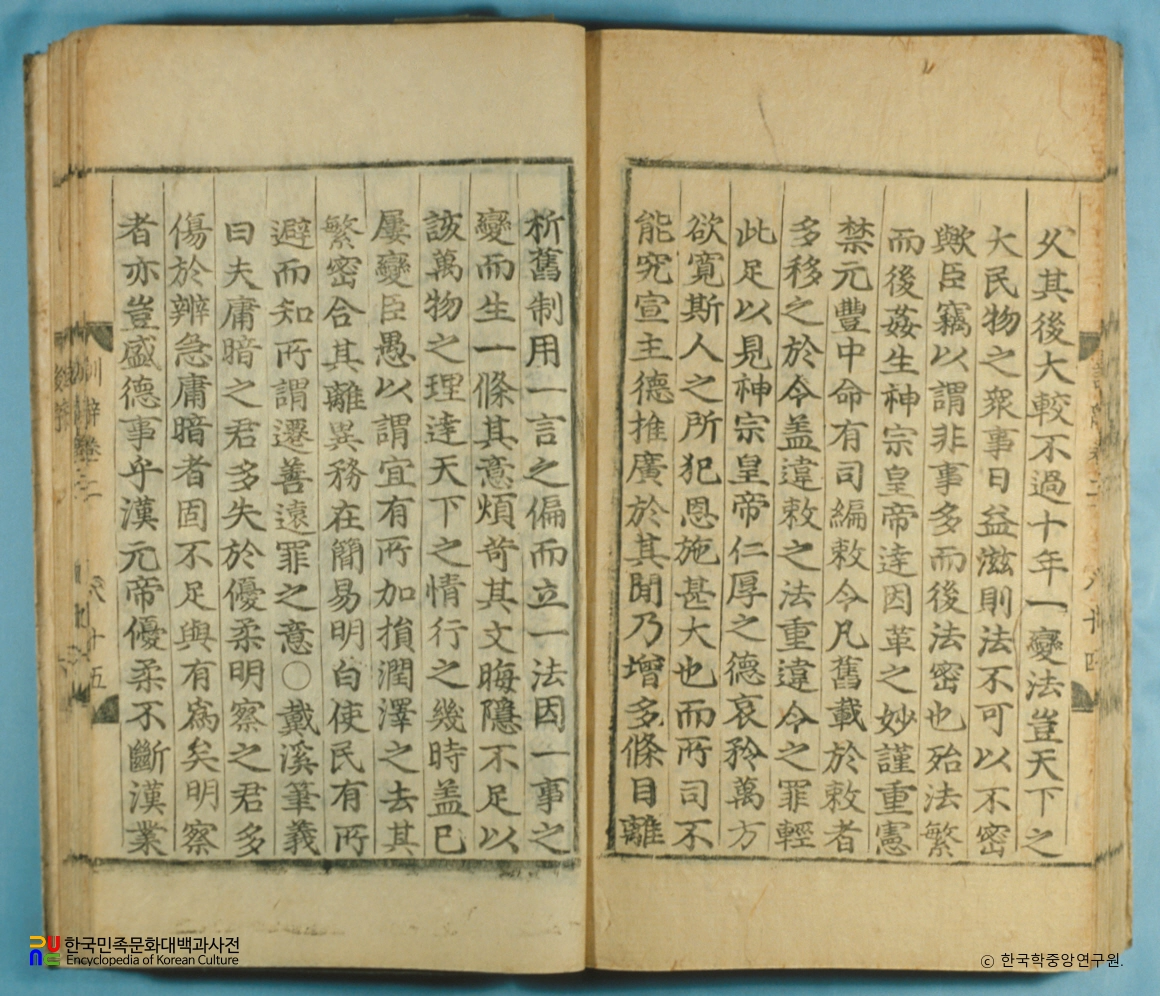 父其後大較不過十年一變法豈天下之
大民物之衆事日益滋則法不可以不密
歟臣竊以謂非事多而後法密也殆法繁
而後姦生神宗皇帝達因革之妙謹重憲
禁元豐中命有司編敕令凡舊載於敕者
多移之於令盖違敕之法重違令之罪輕
此足以見神宗皇帝仁厚之德哀矜萬方
欲寛斯人之所犯恩施甚大也而所司不
能究宣主德推廣於其閒乃增多條目離
析舊制用一言之偏而立一法因一事之
變而生一條其意煩苛其文晦隱不足以
該萬物之理達天下之情行之幾時盖已
屢變臣愚以謂宜有所加損潤澤之去其
繁密合其離異務在簡易明白使民有所
避而知所謂遷善遠罪之意○戴溪筆義
曰夫庸暗之君多失於優柔明察之君多
傷於辨急庸暗者固不足與有爲矣明察
者亦豈盛德事乎漢元帝優柔不斷漢業
十五
한국민족문화대백과사전
Encyclopedia of Korean Culture
ⓒ 한국학중앙연구원.